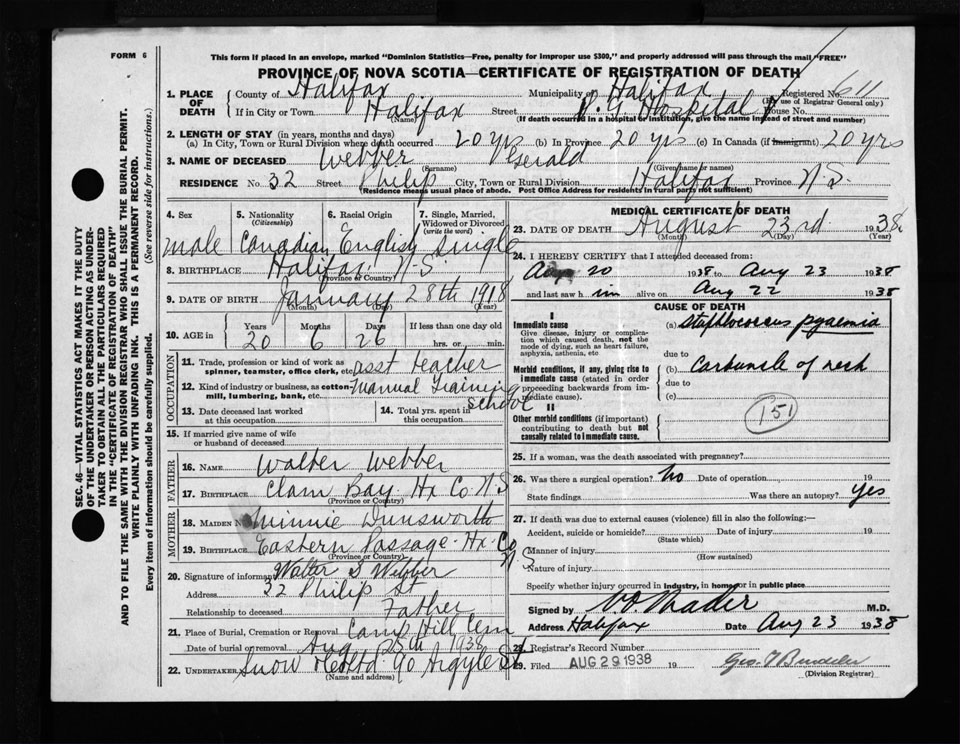 FORM 6
This form if placed in an envelope, marked "Dominion Statistics—Free, penalty for improper use $300," and properly addressed will pass through the mail "FREE"
PROVINCE OF NOVA SCOTIA—CERTIFICATE OF REGISTRATION OF DEATH
1. PLACE OF DEATH County of Halifax Municipality of Halifax Registered No. 611
(For use of Registrar General only)
If in City or Town Halifax Street V. G. Hospital House No.
(Name) (If death occurred in a hospital or institution, give the name instead of street and number)
2. LENGTH OF STAY (in years, months and days)
(a) In City, Town or Rural Division where death occurred 20 yrs (b) In Province 20 yrs (c) In Canada (if immigrant) 20 yrs
3. NAME OF DECEASED Webber Gerald
(Surname) (Given name or names)
RESIDENCE No. 32 Street Philip City, Town or Rural Division Halifax Province N.S.
(Residence means usual place of abode. Post Office Address for residents in rural parts not sufficient)
4. Sex male
5. Nationality (Citizenship) Canadian
6. Racial Origin English
7. Single, Married, Widowed or Divorced (write the word) single
8. BIRTHPLACE Halifax N.S.
(Province or Country)
9. DATE OF BIRTH January 28th 1918
(Month) (Day) (Year)
10. AGE in Years 20 Months 6 Days 26 If less than one day old hrs. or min.
OCCUPATION
11. Trade, profession or kind of work as spinner, teamster, office clerk, etc. asst teacher
12. Kind of industry or business, as cotton mill, lumbering, bank, etc. manual training school
13. Date deceased last worked at this occupation
14. Total yrs. spent in this occupation
15. If married give name of wife or husband of deceased
FATHER
16. NAME Walter Webber
17. BIRTHPLACE Clam Bay Hx Co N S
(Province or Country)
MOTHER
18. MAIDEN N Minnie Dunsworth
19. BIRTHPLACE Eastern Passage Hx. Co N
(Province or Country)
20. Signature of informant Walter S Webber
Address 32 Philip St
Relationship to deceased Father
21. Place of Burial, Cremation or Removal Camp Hill Cem
Date of burial or removal Aug 25th 1938
22. UNDERTAKER Snow & Co Ltd 90 Argyle St
(Name and address)
MEDICAL CERTIFICATE OF DEATH
23. DATE OF DEATH August 23rd 1938
(Month) (Day) (Year)
24. I HEREBY CERTIFY that I attended deceased from:
Aug 20 1938 to Aug 23 1938
and last saw h im alive on Aug 22 1938
CAUSE OF DEATH
I
Immediate cause
Give disease, injury or complication which caused death, not the mode of dying, such as heart failure, asphyxia, asthenia, etc
(a) Staphlococcus pyaemia
due to
Morbid conditions, if any, giving rise to immediate cause (stated in order proceeding backwards from immediate cause).
(b) Carbuncle of neck
due to
(c)
II
Other morbid conditions (if important) contributing to death but not causally related to immediate cause.
151
25. If a woman, was the death associated with pregnancy?
26. Was there a surgical operation? No Date of operation 19
State findings Was there an autopsy? yes
27. If death was due to external causes (violence) fill in also the following:—
Accident, suicide or homicide? Date of injury 19
(State which)
Manner of injury
(How sustained)
Nature of injury
Specify whether injury occurred in industry, in home or in public place
Signed by V.O. Mader M.D.
Address Halifax Date Aug 23 1938
28. Registrar's Record Number
29. Filed AUG 29 1938 19
(Division Registrar)
SEC. 46—VITAL STATISTICS ACT MAKES IT THE DUTY
OF THE UNDERTAKER OR PERSON ACTING AS UNDER-
TAKER TO OBTAIN ALL THE PARTICULARS REQUIRED
IN THE "CERTIFICATE OF REGISTRATION OF DEATH"
AND TO FILE THE SAME WITH THE DIVISION REGISTRAR WHO SHALL ISSUE THE BURIAL PERMIT.
WRITE PLAINLY WITH UNFADING INK. THIS IS A PERMANENT RECORD.
Every item of information should be carefully supplied. (See reverse side for instructions.)